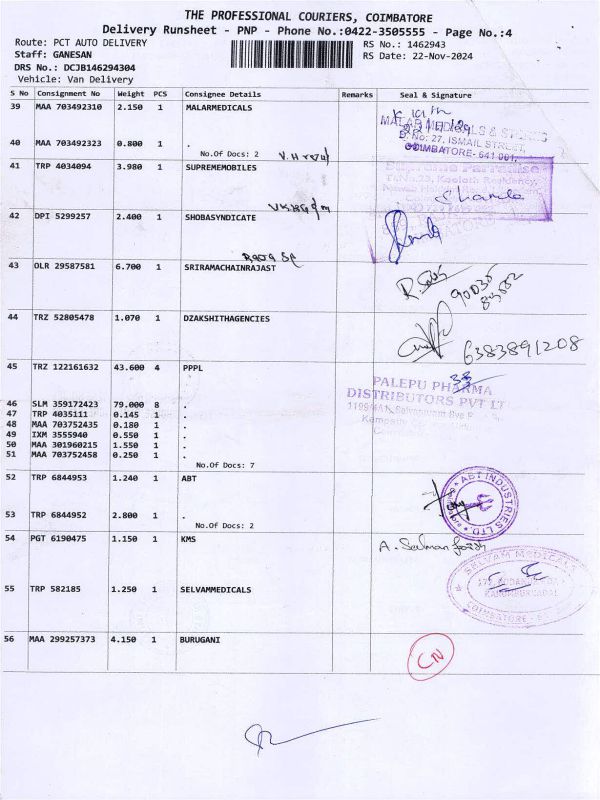 THE PROFESSIONAL COURIERS, COIMBATORE
Delivery Runsheet - PNP - Phone No.:0422-3505555 - Page No.:4
Route: PCT AUTO DELIVERY RS No.: 1462943
Staff: GANESAN RS Date: 22-Nov-2024
DRS No.: DCJB146294304
Vehicle: Van Delivery
S No Consignment No Weight PCS Consignee Details Remarks Seal & Signature
39 MAA 703492310 2.150 1 MALARMEDICALS
MALAR MEDICALS &
D. No: 27, ISMAIL STREET,
40 MAA 703492323 0.800 1 .
COIMBATORE- 641 001.
No.Of Docs: 2
41 TRP 4034094 3.980 1 SUPREMEMOBILES
42 DPI 5299257 2.400 1 SHOBASYNDICATE
43 OLR 29587581 6.700 1 SRIRAMACHAINRAJAST
44 TRZ 52805478 1.070 1 DZAKSHITHAGENCIES
6383891208
45 TRZ 122161632 43.600 4 PPPL
PALEPU PHARMA
DISTRIBUTORS PVT LT
46 SLM 359172423 79.000 8 .
47 TRP 4035111 0.145 1 .
48 MAA 703752435 0.180 1 .
49 IXM 3555940 0.550 1 .
50 MAA 301960215 1.550 1 .
51 MAA 703752458 0.250 1 .
No.Of Docs: 7
52 TRP 6844953 1.240 1 ABT
ABT INDUSTRIES LTD.
53 TRP 6844952 2.800 1 .
No.Of Docs: 2
54 PGT 6190475 1.150 1 KMS
A. Salman
SELVAM MEDICALS
55 TRP 582185 1.250 1 SELVAMMEDICALS
COIMBATORE
56 MAA 299257373 4.150 1 BURUGANI
CN